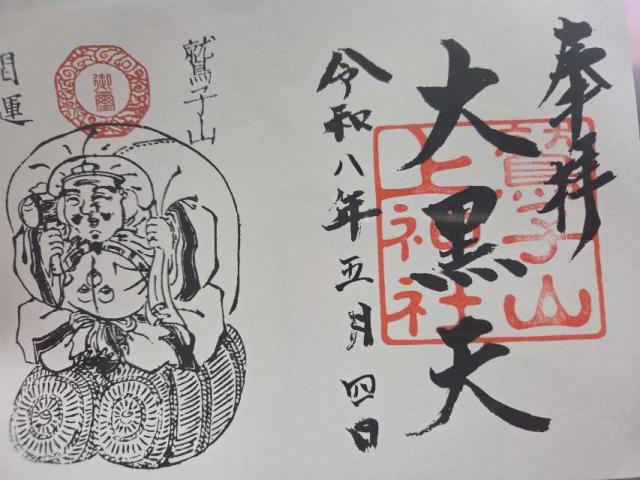 奉拝
大黒天
鷲子山
上神社
令和八年五月四日
鷲子山
御璽
開運